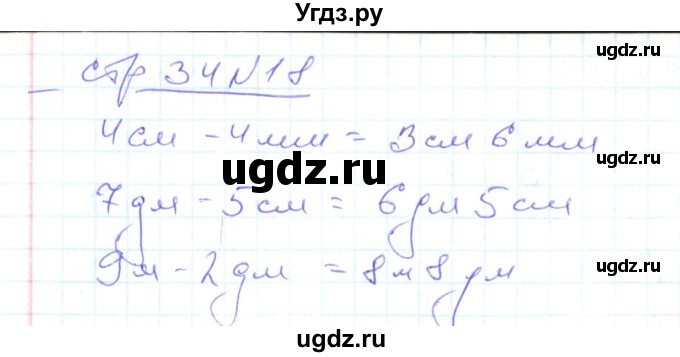 Угдз.ру
ugdz.ru
стр 34 N 18
4 см - 4 мм = 3 см 6 мм
ugdz.ru
ugdz.ru
7 дм - 5 см = 6 дм 5 см
9 м - 2 дм = 8 м 8 дм
ugdz.ru
ugdz.ru
ugdz.ru